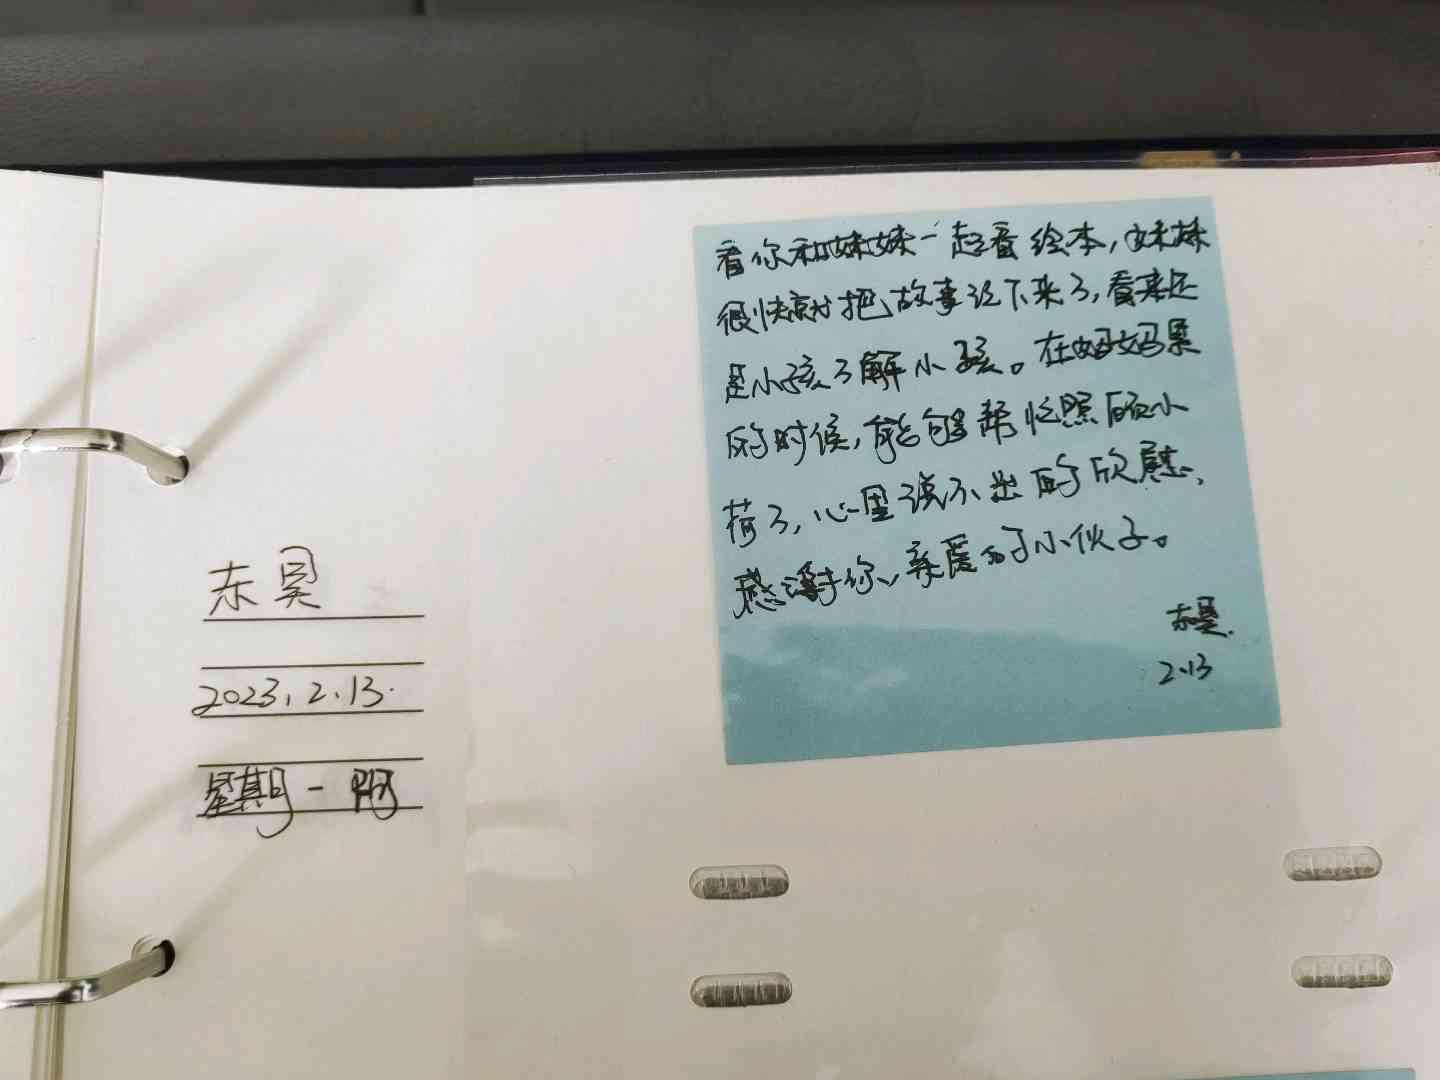 东昊
2023.2.13.
星期一 阴
看你和妹妹一起看绘本,妹妹
很快就把故事记下来了,看来还
是小孩了解小孩。在妈妈累
的时候,能够帮忙照顾小
荷了,心里说不出的欣慰,
感谢你,亲爱的小伙子。
东昊.
2.13